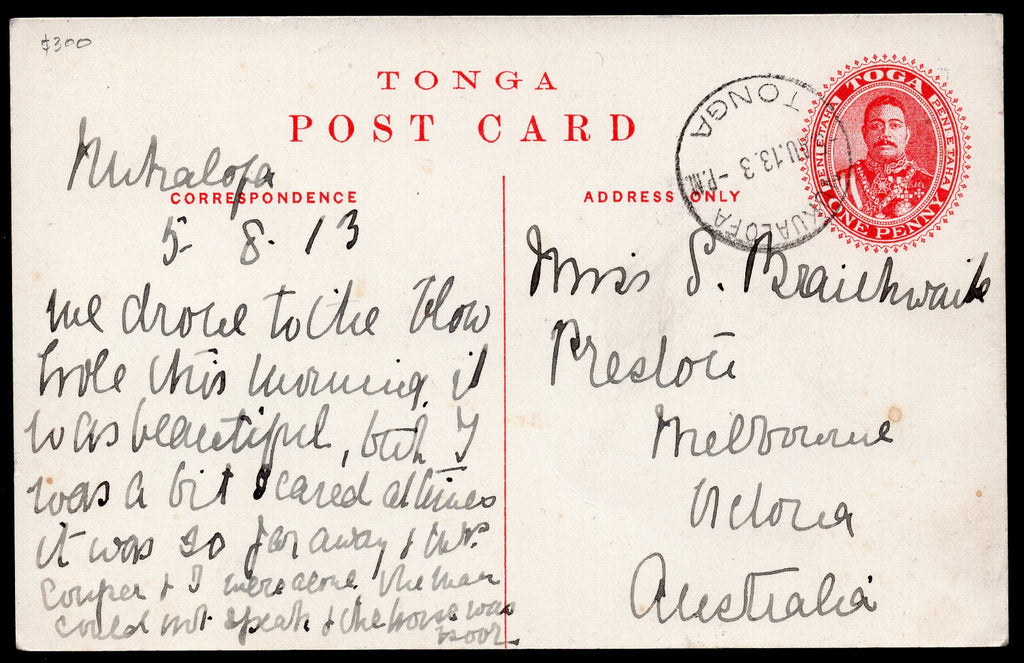 $300
TONGA
POST CARD
CORRESPONDENCE
ADDRESS ONLY
TONGA
AU.13.3 -P.M.
NUKUALOFA
TOGA
PENI E TAHA
PENI E TAHA
ONE PENNY
Nukualofa
5 - 8 . 13
we drove to the Blow
hole this morning it
was beautiful, but I
was a bit scared at times
it was so far away &
Couper & I were alone the man
could not speak & the horse was
poor
Miss S. Braithwaite
Preston
Melbourne
Victoria
Australia